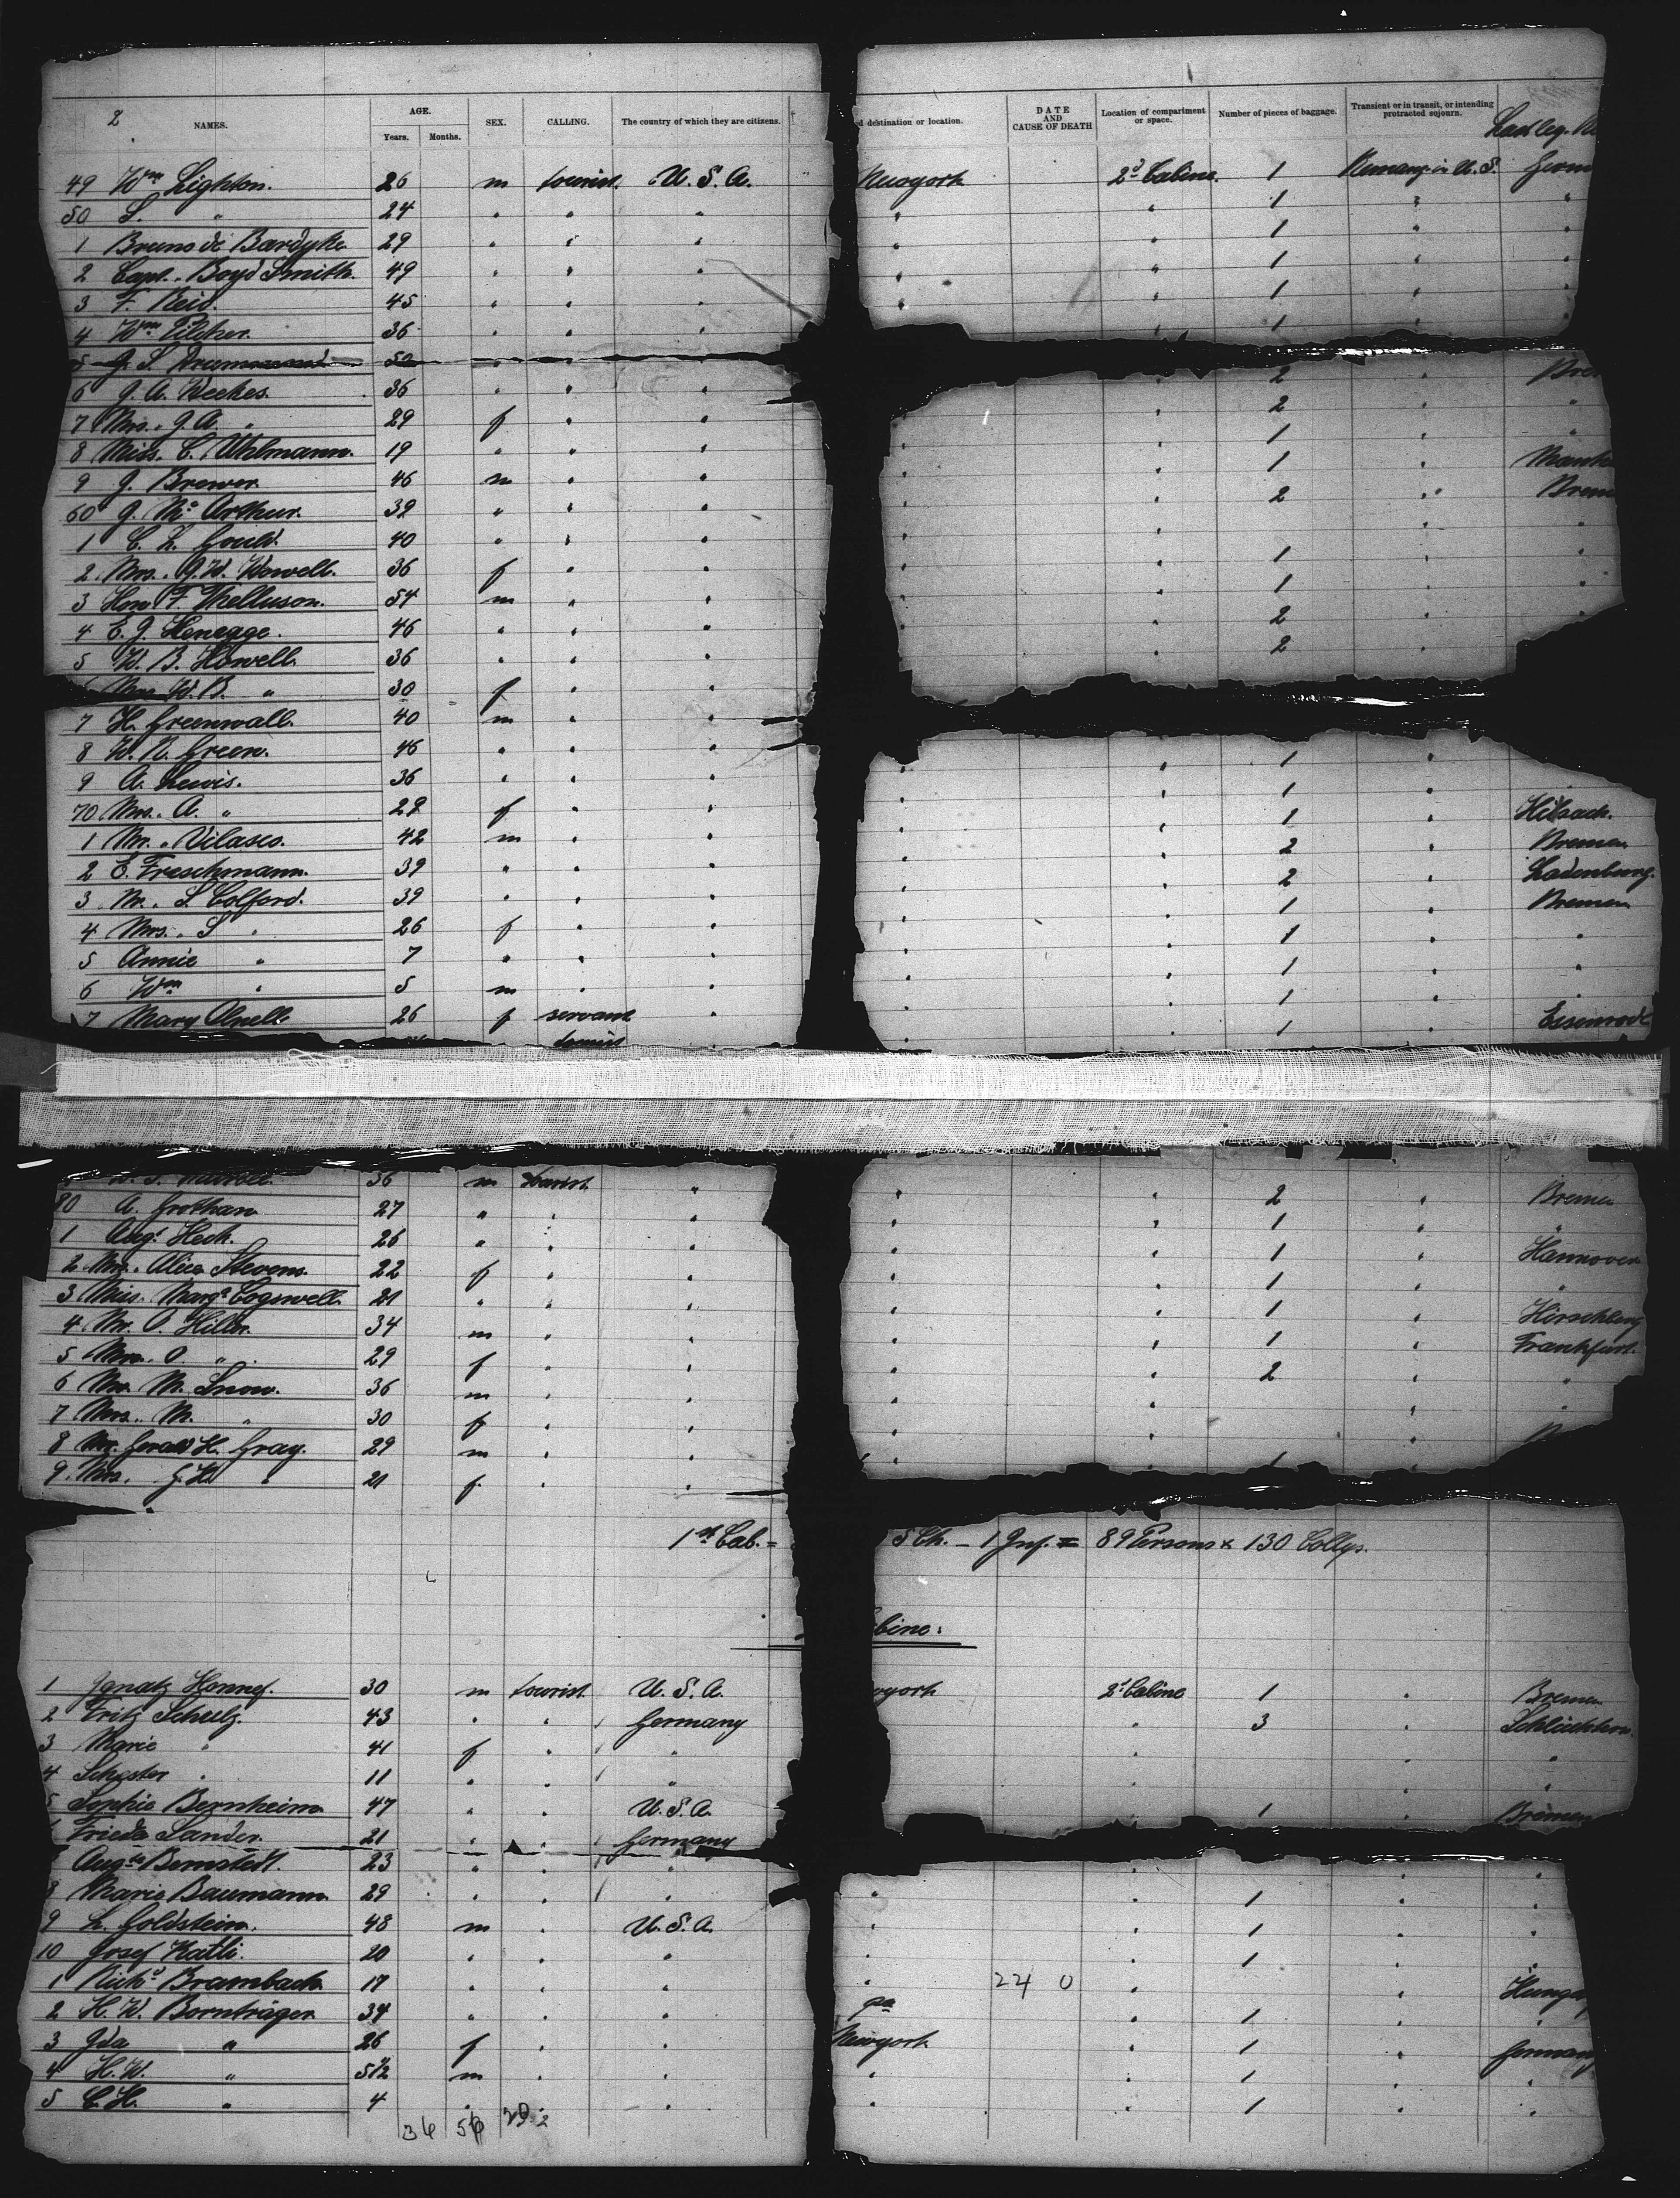 2 NAMES. AGE. Years. Months. SEX. CALLING. The country of which they are citizens. d destination or location. DATE AND CAUSE OF DEATH Location of compartment or space. Number of pieces of baggage. Transient or in transit, or intending protracted sojourn.
49 Wm Lighton. 26 m tourist. U. S. A. Newyork 2d Cabine. 1 in U. S. Germ
50 S. " 24 " " " " " 1 " "
1 Bruno de Bardyke 29 " " " " " 1 " "
2 Capt. Boyd Smith. 49 " " " " " 1 " "
3 F. Reid. 45 " " " " " 1 "
4 Wm Pilcher. 36 " " " 1 "
5 J. S. 50 " " " 2 " Bre
6 J. A. Weekes. 36 " " " " 2 " "
7 Mrs. J. A. " 29 f " " " " 1 " "
8 Miss. C. Uhlmann. 19 " " " " " 1 " Mank
9 J. Brewer. 46 m " " " " 2 " Brem
60 J. Mc Arthur. 39 " " " " " " "
1 C. L. Gould. 40 " " " " " 1 " "
2 Mrs. J. W. Wowell. 36 f " " " " 1 " "
3 Hon F. Thelluson. 54 m " " " " 2 " "
4 E. J. Henegge. 46 " " " " " 2 "
5 W. B. Howell. 36 " " "
Mrs W. B. " 30 f " "
7 H. Greenwall. 40 m " "
8 W. N. Green. 46 " " " " " 1 "
9 A. Lewis. 36 " " " " " 1 "
70 Mrs. A. " 28 f " " " " 1 " Hilsach.
1 Mr. Vilasco. 42 m " " " " 2 " Bremen
2 E. Freschmann. 39 " " " " " 2 " Ladenburg.
3 Mr. S. Colford. 39 " " " " " 1 " Bremen
4 Mrs. S " 26 f " " " " 1 " "
5 Annie " 7 " " " " " 1 " "
6 Wm " 5 m " " " " 1 " "
7 Mary Olnell 26 f servant " " " 1 " Essenrode
tourist
36 m tourist " " " 2 " Bremen
80 A. Grothan 27 " " " " " 1 " "
1 Augt Heck. 26 " " " " " 1 " Hannover
2 Mrs. Alice Stevens. 22 f " " " " 1 " "
3 Miss. Margt Cogswell. 21 " " " " " 1 " Hirschberg
4 Mr. O. Hiller. 34 m " " " " 1 " Frankfurt.
5 Mrs. O. " 29 f " " " " 2 " "
6 Mr. M. Snow. 36 m " " " " " "
7 Mrs. M. " 30 f " " " " "
8 Mr. Gerald H. Gray. 29 m " " " 1 "
9 Mrs. G. H. " 21 f " "
1st Cab. = 5 Ch. — 1 Inf. = 89 Persons x 130 Collys.
bine.
1 Ignatz Honnef. 30 m tourist. U. S. A. wyork 2d Cabine 1 " Bremen
2 Fritz Schulz. 43 " " Germany " 3 " Schlüchtern.
3 Marie " 41 f " " " " "
4 Schester " 11 " " " " " "
5 Sophie Bernheim 47 " " U. S. A. " 1 " Bremen
Frieda Sander. 21 " " Germany
Augta Bernstedt. 23 " " " " " "
8 Marie Baumann. 29 " " " " " 1 " "
9 L. Goldstein. 48 m " U. S. A. " " 1 " "
10 Josef Katli. 20 " " " " " 1 " "
1 Richd Brambach 17 " " " " 22 4 0 " " Hungar
2 H. W. Bornträger 34 " " " pa " 1 " "
3 Ida " 26 f " " Newyork " 1 " German
4 H. W. " 5 1/2 m " " " " 1 " "
5 C. H. " 4 " " " " " 1 " "